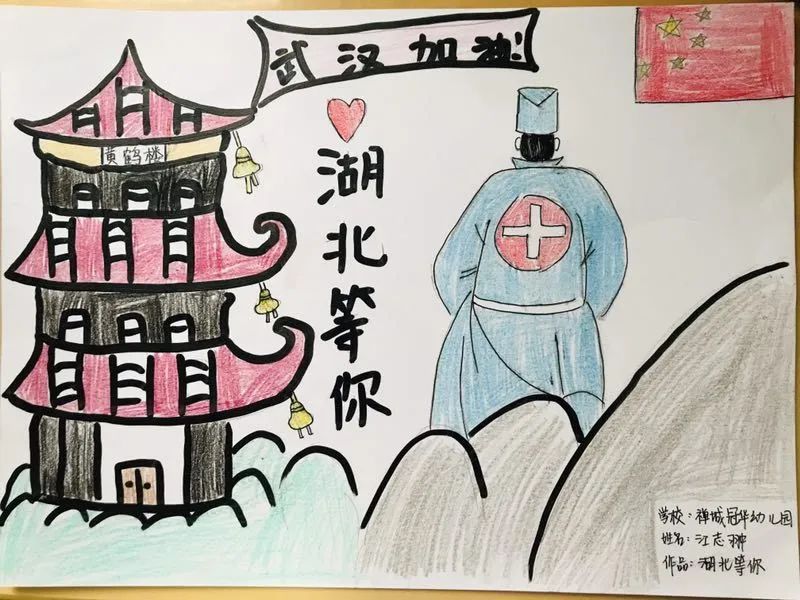 武汉加油!
黄鹤楼
湖北等你
学校:禅城冠华幼儿园
姓名:江志翀
作品:湖北等你